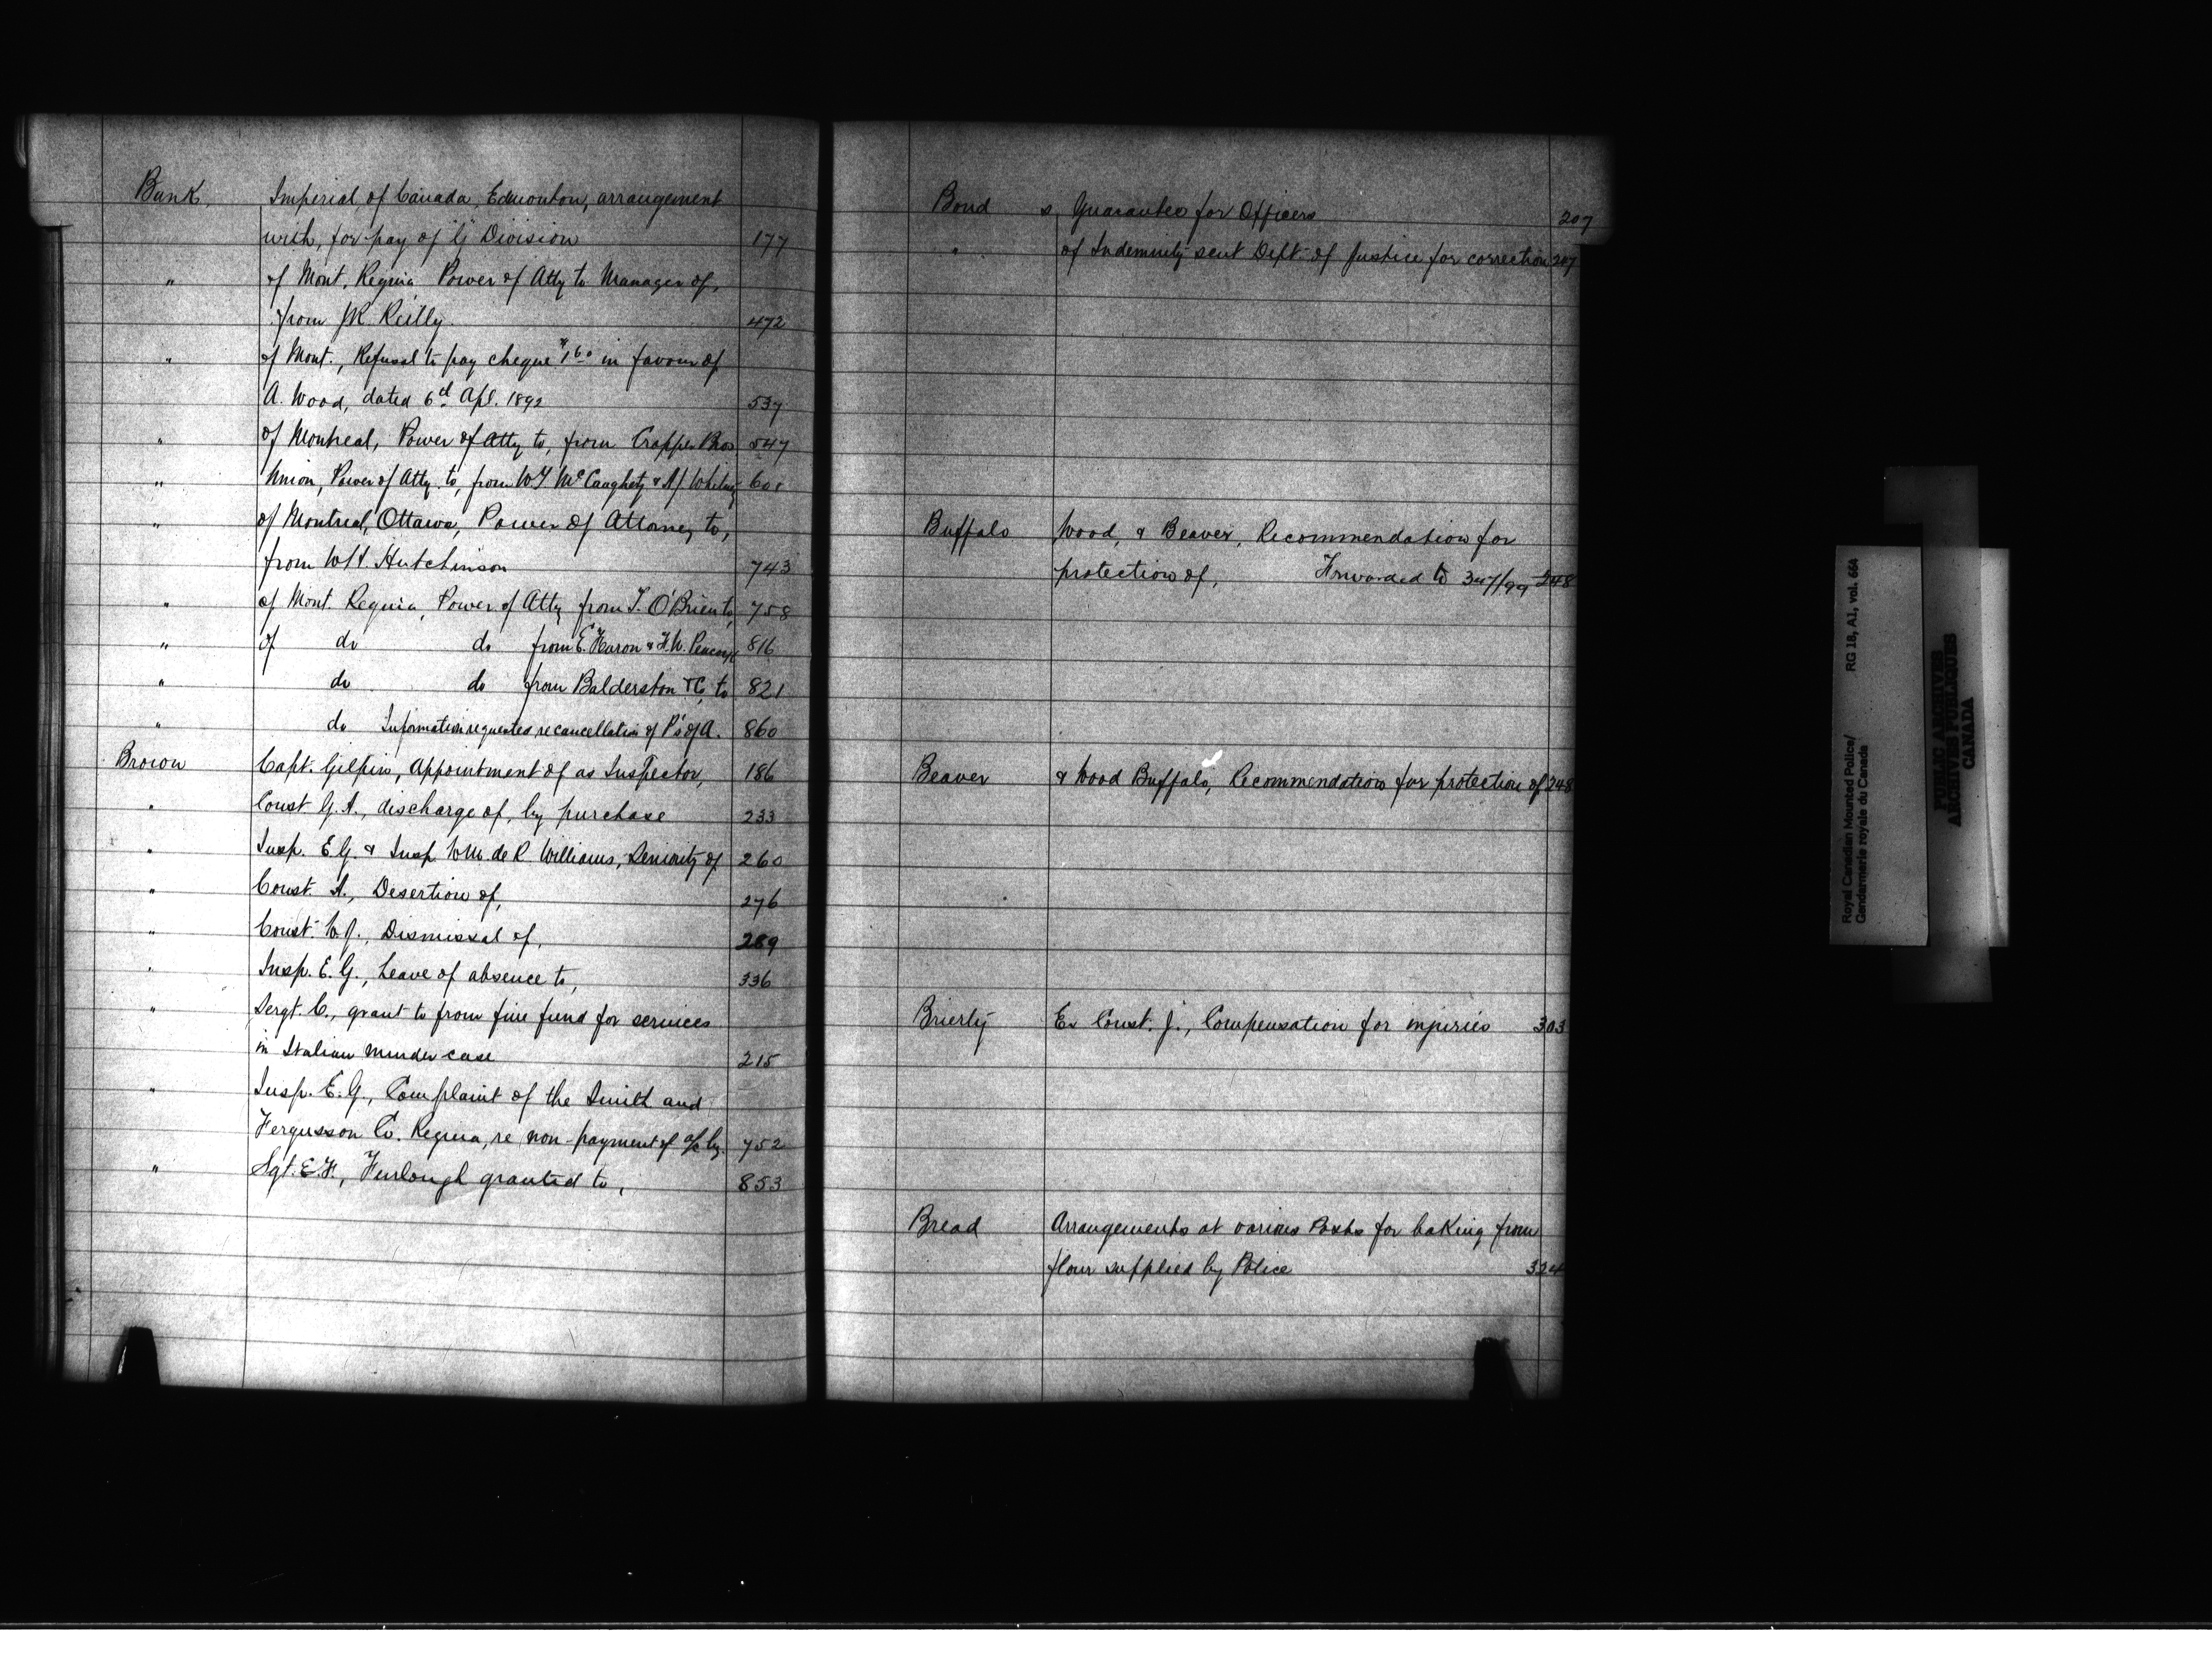 Bank, Imperial, of Canada, Edmonton, arrangement
with, for pay of "G" Division 177
" of Mont, Regina Power of Atty to Manager of,
from JR Reilly 472
" of Mont., Refusal to pay cheque $1 60 in favour of
A. Wood, dated 6th Apl. 1892 537
" of Montreal, Power of Atty to, from Cropper Bros 547
" Union, Power of Atty. to, from McCaughety &
" of Montreal, Ottawa, Power of Attorney to,
from W.H. Hutchinson 743
" of Mont. Regina, Power of Atty from T. O'Brien to, 758
" of do do from E. Haron & F.W. 816
" do do from Balderston & Co to 821
" do Information requested, re cancellation of P's of A. 860
Brown Capt. Gilpin, Appointment of as Inspector, 186
" Const G.A., discharge of, by purchase 233
" Insp. E.G. & Insp. W.M. de R Williams, Seniority of 260
" Const. A., Desertion of, 276
" Const. W.J., Dismissal of, 289
" Insp. E.G., Leave of absence to, 336
" Sergt. C., grant to from fine fund for services
in Italian murder case 215
" Insp. E.G., Complaint of the Smith and
Fergusson Co. Regina, re non-payment of a/c by. 752
" Sgt. E.H., Furlough granted to, 853
Bond s, Guarantee for Officers 207
" of Indemnity sent Dept. of Justice for correction 207
Buffalo Wood, & Beaver, Recommendation for
protection of, Forwarded to 347/99 248
Beaver & Wood Buffalo, Recommendation for protection of 248
Brierly Ex Const. J., Compensation for injuries 303
Bread Arrangements at various Posts for baking from
flour supplied by Police 324
Royal Canadian Mounted Police/
Gendarmerie royale du Canada
RG 18, A1, vol. 664
PUBLIC ARCHIVES
ARCHIVES PUBLIQUES
CANADA